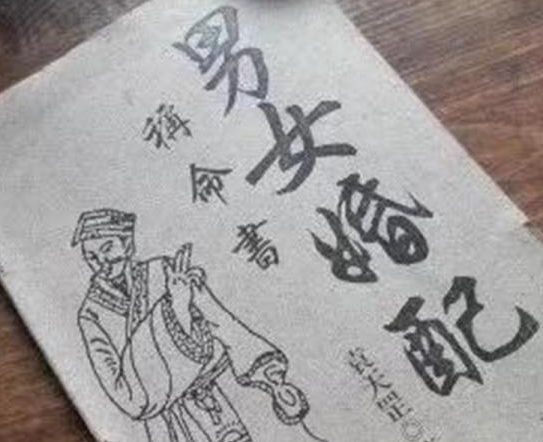 男女婚配
稱命書
袁天罡